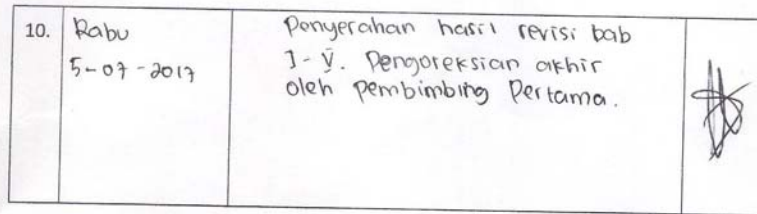 10.
Rabu
5-07-2017
Penyerahan hasil revisi bab
I-V. Pengoreksian akhir
oleh pembimbing Pertama.